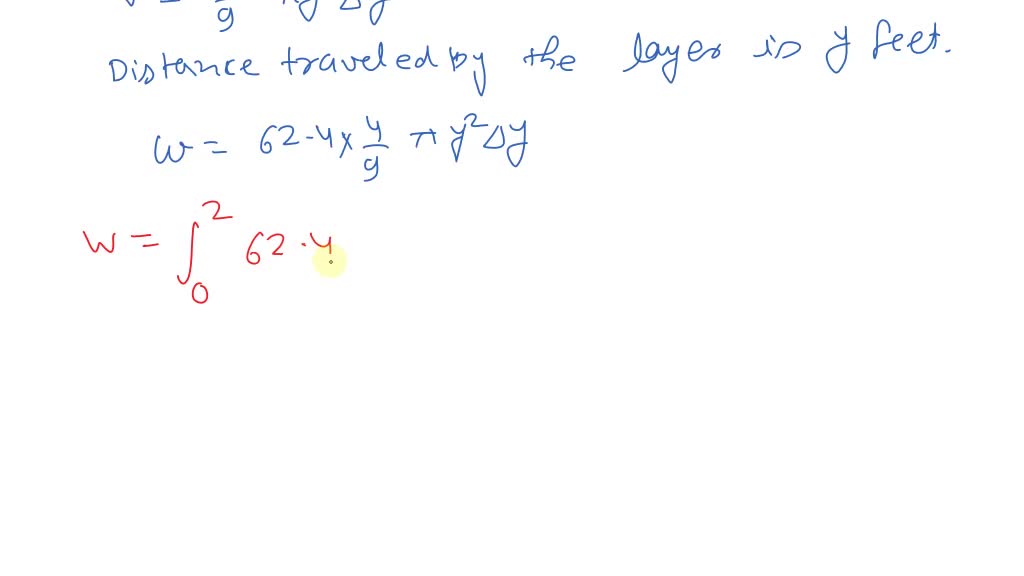 g
Distance traveled by the layer is y feet.
W = 62.4 x 4/9 π y² Δy
W = ∫₀² 62.4